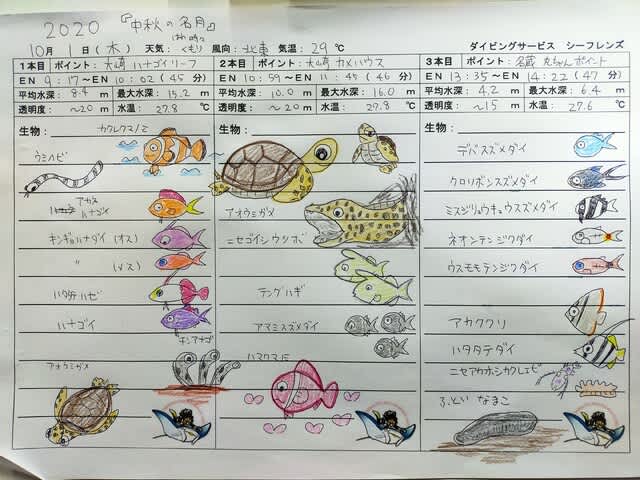 2020 『中秋の名月』
10月 1日(木) 天気: くもり 風向: 北東 気温: 29℃ ダイビングサービス シーフレンズ
1本目 ポイント: 大崎 ハナゴイリーフ
EN 9:17〜EN 10:02 (45分)
平均水深 8.4 m 最大水深 15.2 m
透明度 〜20 m 水温: 27.8 ℃
生物: カクレクマノミ
ウミヘビ
アカネ
ハナゴイ
キンギョハナダイ (オス)
〃 (メス)
ハタタテハゼ
ハナゴイ
チンアナゴ
アオウミガメ
2本目 ポイント: 大崎 カメハウス
EN 10:59〜EN 11:45 (46分)
平均水深 10.0 m 最大水深 16.0 m
透明度 〜20 m 水温: 27.8 ℃
生物:
アオウミガメ
ニセゴイシウツボ
テングハギ
アマミスズメダイ
ハマクマノミ
3本目 ポイント: 名蔵 丸ちゃんポイント
EN 13:35〜EN 14:22 (47分)
平均水深 4.2 m 最大水深 6.4 m
透明度 〜15 m 水温: 27.6 ℃
生物:
デバスズメダイ
クロリボンスズメダイ
ミスジリュウキュウスズメダイ
ネオンテンジクダイ
ウスモモテンジクダイ
アカククリ
ハタタテダイ
ニセアカホシカクレエビ
ふとい なまこ